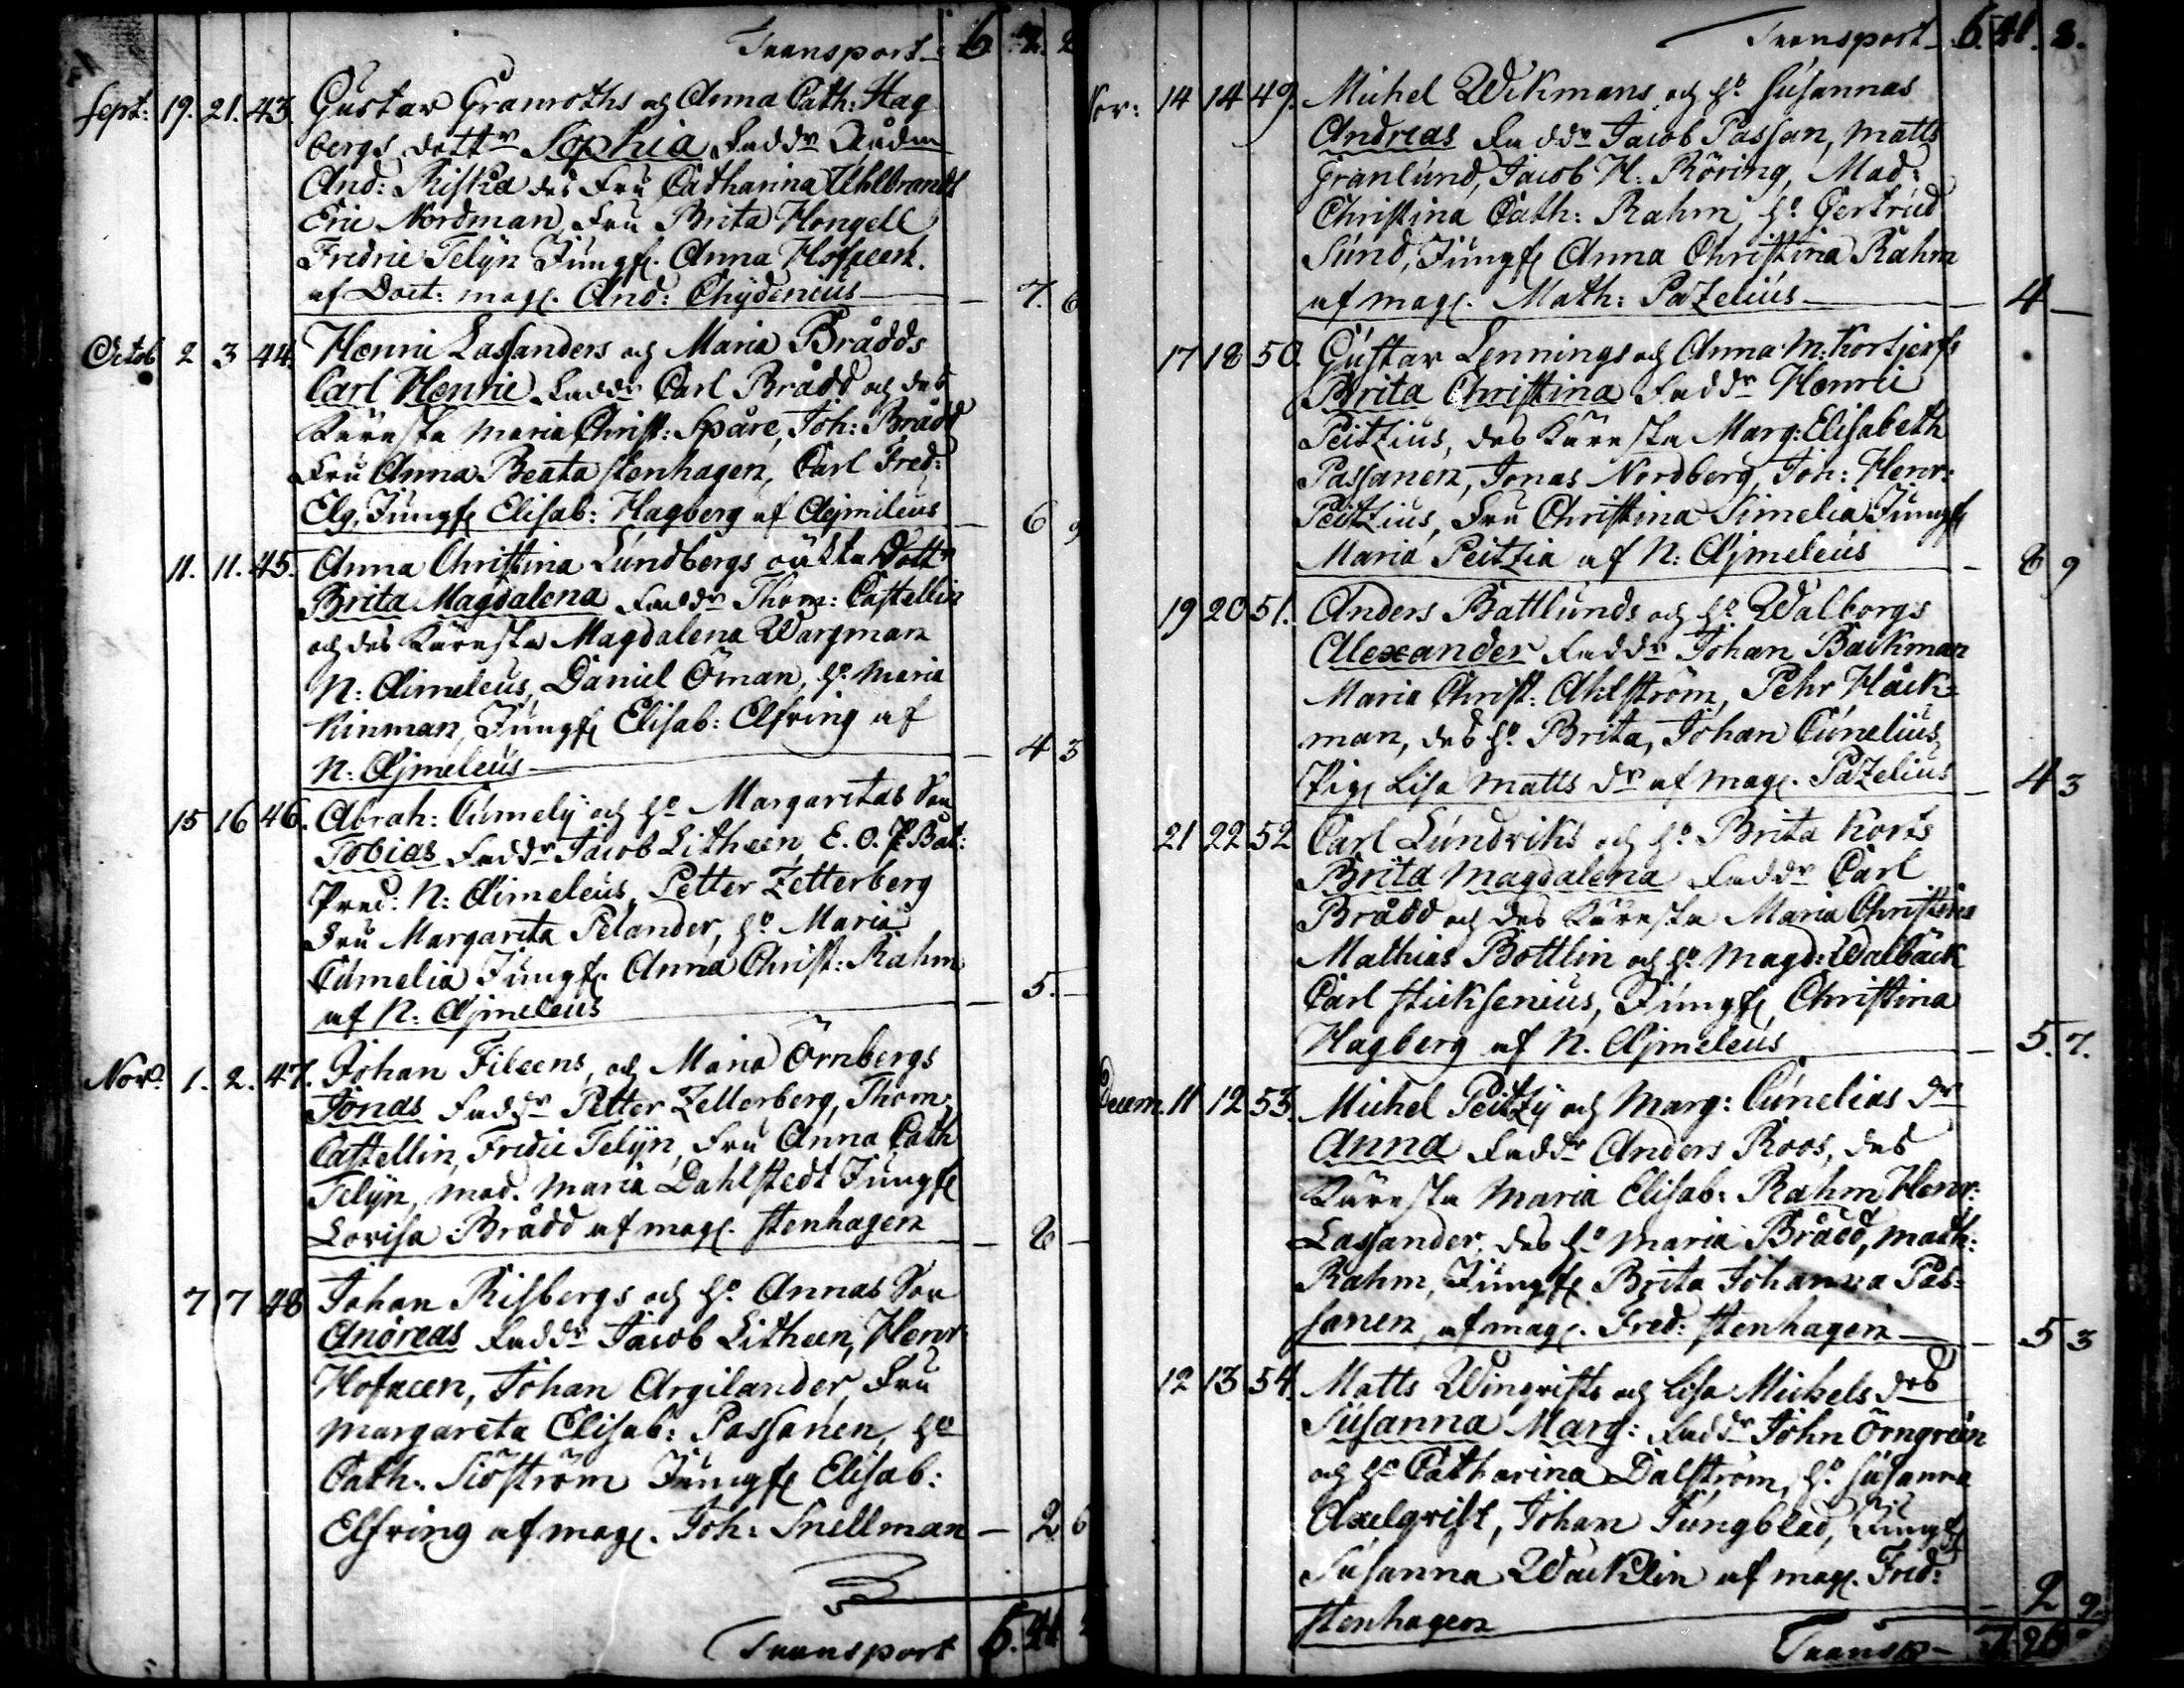 Transport 6. 2. 2
Sept: 19. 21. 43. Gustav Granroths och Anna Cath: Hag
bergs dottr Sophia Faddr Rådm
And: Riska des Fru Catharina Uhlbrandt
Eric Nordman, Fru Brita Hongell
Fredric Telyn Jungf. Anna Hofreen.
af Doct: mag. And: Chydenius — 7. 6
Octob 2 3 44. Henric Lassanders och Maria Brådds
Carl Henric Faddr Carl Brådd och des
Käresta Maria Christ: Spåre, Joh: Brådd
Fru Anna Beata Stenhagen, Carl Fred:
Elg, Jungf Elisab: Hagberg af Ajmeleus — 6 9
11. 11. 45. Anna Christina Lundbergs oäkta Dottr
Brita Magdalena Faddr Thom: Castellin
och des Käresta Magdalena Wargman
N: Aimeleus, Daniel Öman, H. Maria
Kinman, Jungf Elisab: Elfving af
N: Ajmeleus — 4 3
15 16 46. Abrah: Cumely och H. Margaretas Son
Tobias Faddr Jacob Litheen E. O. P. Bat:
Pred: N: Aimeleus, Petter Zetterberg
Fru Margareta Pelander, H. Maria
Cumelia Jungf. Anna Christ: Rahm
af N. Ajmeleus — 5. —
Nov. 1. 2. 47. Johan Fileens, och Maria Örnbergs
Jonas Faddr Petter Zetterberg, Thom:
Castellin, Fredic Telyn, Fru Anna Cath
Telyn, Mad. Maria Dahlstedt Jungf
Lovisa Brådd af mag. Stenhagen — 8 —
7 7 48 Johan Risbergs och H. Annas Son
Andreas Faddr Jacob Litheen, Henr:
Hofreen, Johan Argilander, Fru
Margareta Elisab: Passanen, H.
Cath. Siöström Jungf Elisab:
Elfving af mag. Joh: Snellman — 2 6
Transport 6. 41
Transport 6. 41. 8.
Nov: 14 14 49. Michel Wikmans och H. Susannas
Andreas Faddr Jacob Passan, Matts
Granlund, Jacob H: Röring, Mad:
Christina Cath: Rahm, H. Gertrud
Sund, Jungf Anna Christina Rahm
af mag. Math: Pazelius — 4 —
17 18 50. Gustav Lennings och Anna M: Kortjerfs
Brita Christina Faddr Henric
Peitzius, des Käresta Marg: Elisabeth
Passanen, Jonas Nordberg, Joh: Henr:
Peitzius, Fru Christina Simelia Jungf
Maria Peitzia af N: Ajmeleus — 8 9
19 20 51. Anders Battlunds och H. Walborgs
Alexander Faddr Johan Backman
Maria Christ: Ahlström, Pehr Häck-
man, des H. Brita, Johan Cunelius,
Pig. Lisa Matts Dr af mag. Pazelius — 4 3
21 22 52 Carl Lundviks och H. Brita Korts
Brita Magdalena Faddr Carl
Brådd och des Käresta Maria Christina
Mathias Bottlin och H. Magd: Walbäck
Carl Sticksenius, Jungf Christina
Hagberg af N. Ajmeleus — 5. 7.
Decem. 11 12 53. Michel Peitzy och Marg: Cunelias Dr
Anna Faddr Anders Roos, des
Käresta Maria Elisab: Rahm, Henr:
Lassander, des H. Maria Brådd, Math:
Rahm, Jungf Brita Johanna Pas-
sanen, af mag. Fred: Stenhagen — 5 3
12 13 54. Matts Winqvists och Lisa Michels Drs
Susanna Marg: Faddr John Örngren
och H. Catharina Dalström, H. Susanna
Axelqvist, Johan Jungbled, Jungf
Susanna Wacklin af mag. Fred:
Stenhagen — 2 9.
Transp — 7. 26